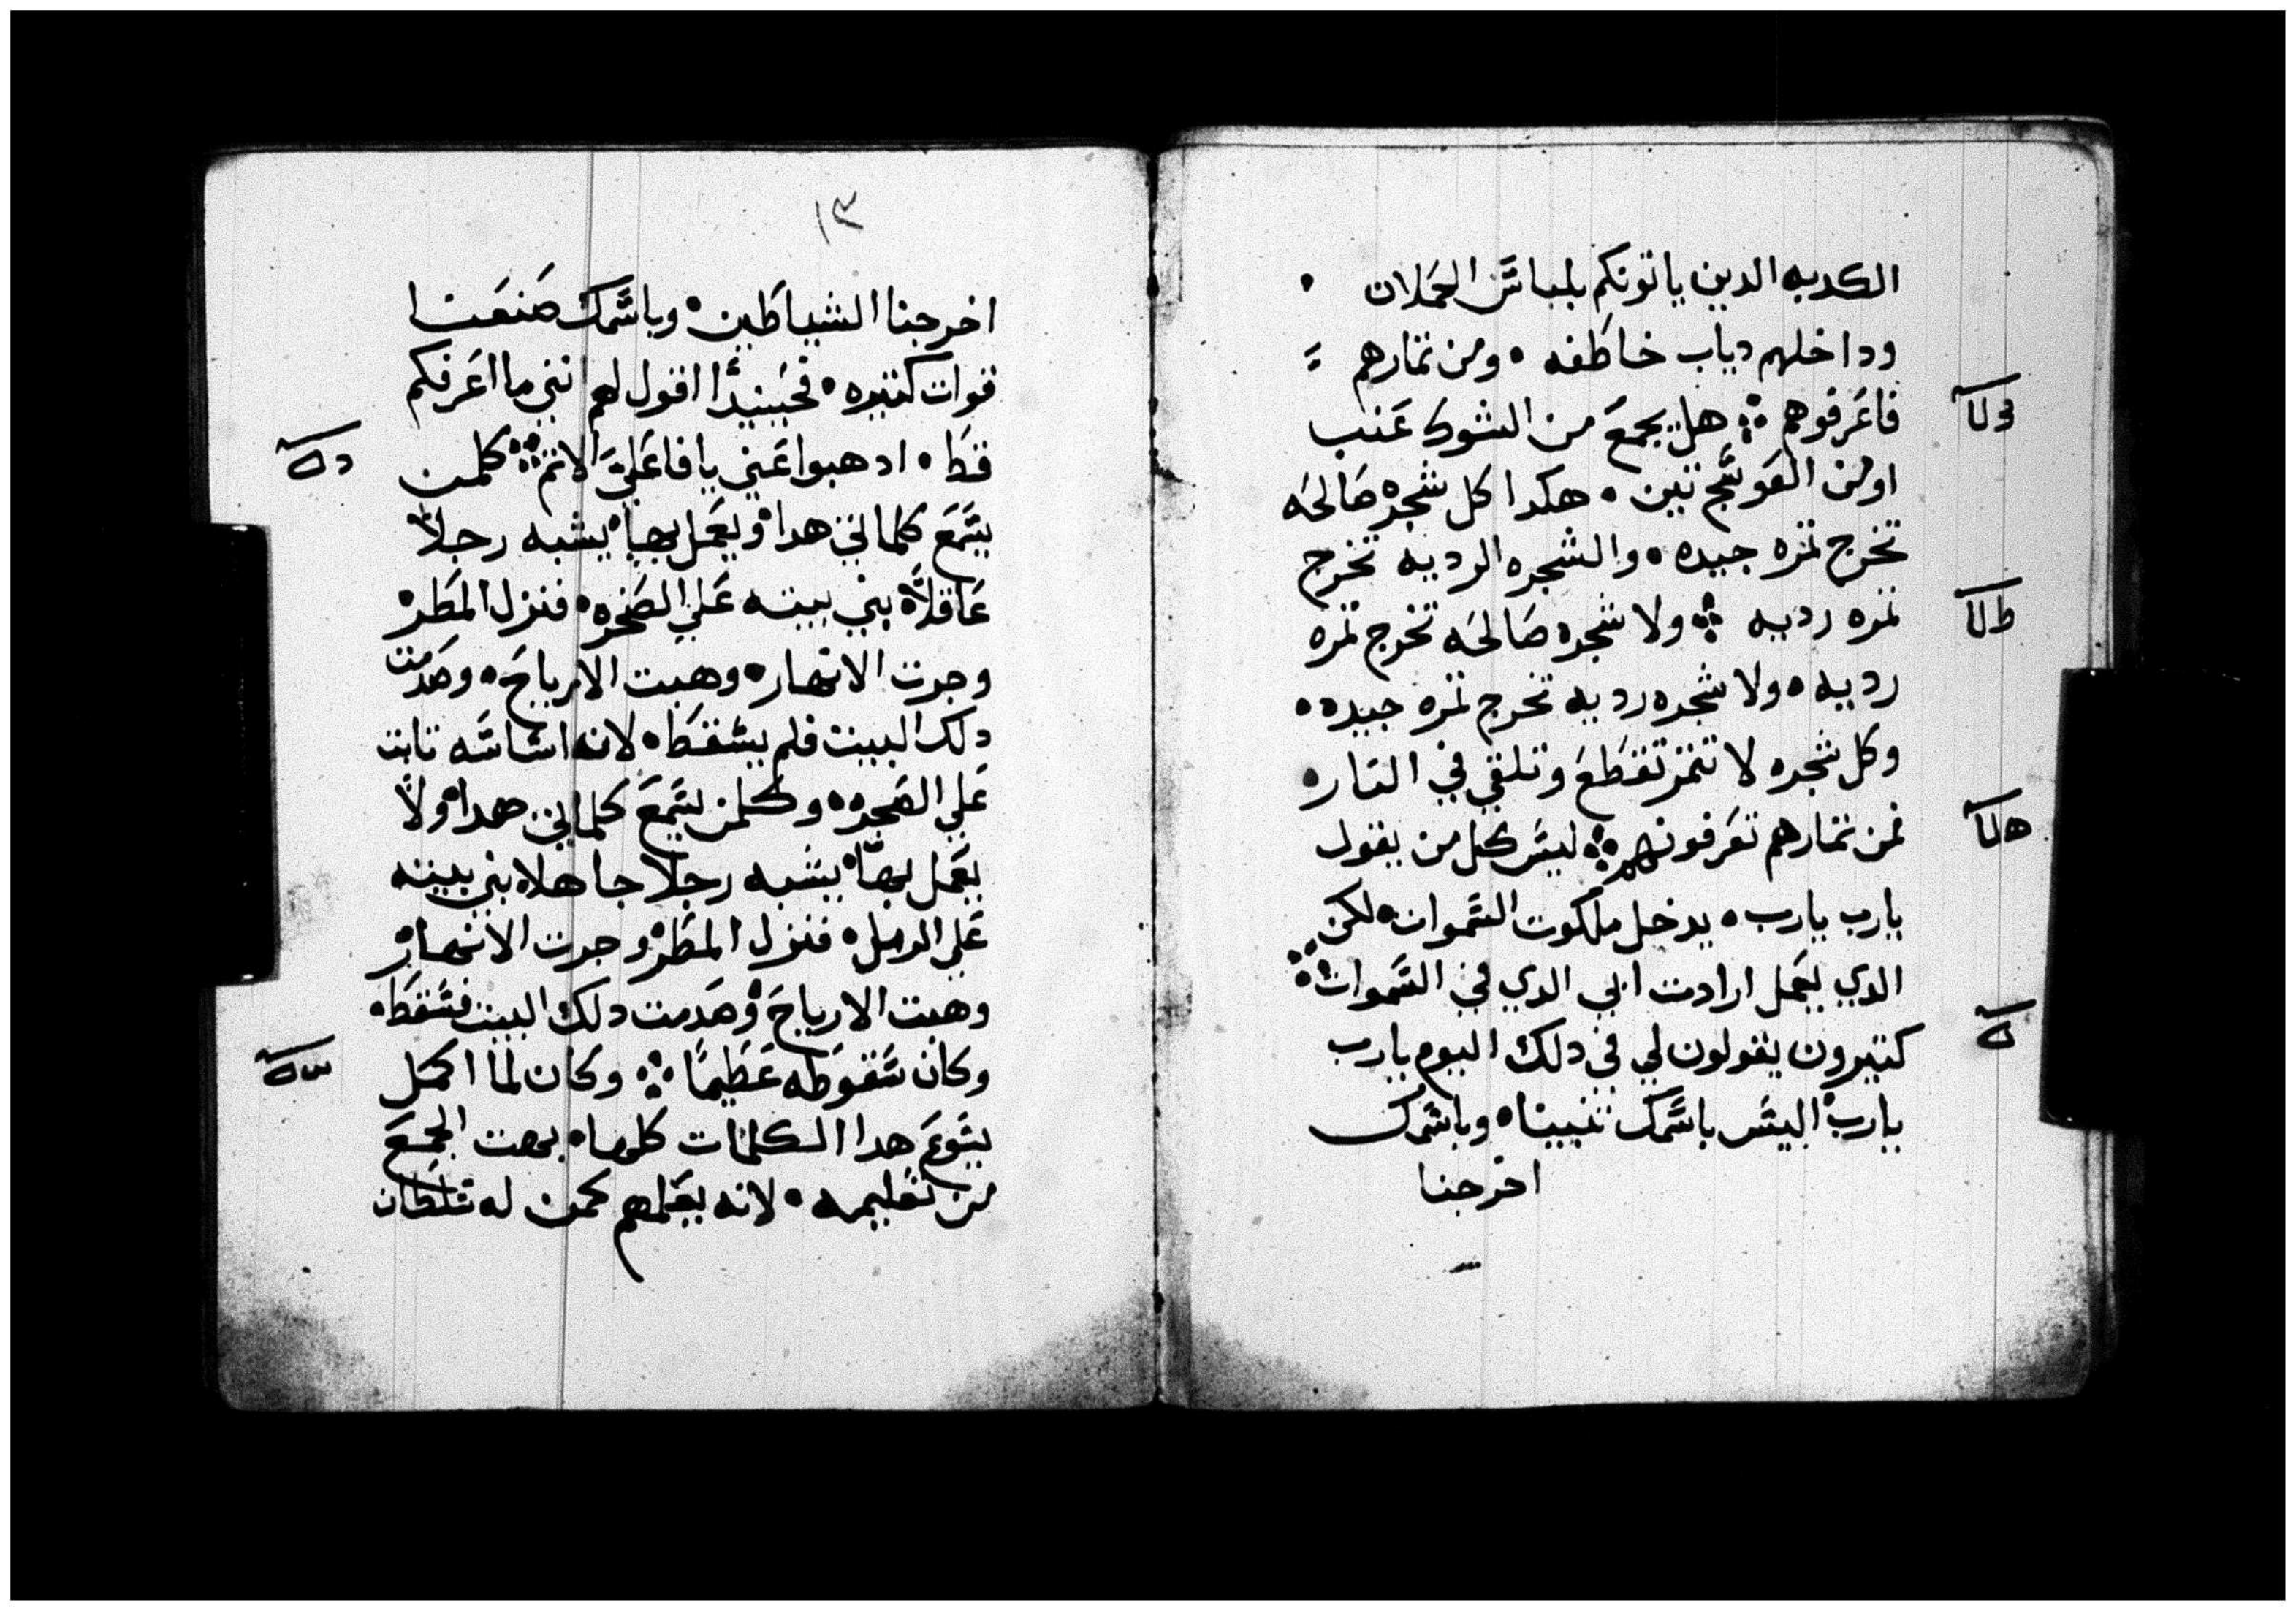 الكدبه الدين ياتونكم بلباس الحملان
وداخلهم دياب خاطفه ومن تمارهم
فاعرفوهم هل يجمع من الشوك عنب
اومن العوسج تين هكدا كل شجره صالحه
تخرج تمره جيده والشجره الرديه تخرج
تمره رديه ولا شجره صالحه تخرج تمره
رديه ولا شجره رديه تخرج تمره جيده
وكل شجره لا تتمر تقطع وتلقي في النار
فمن تمارهم تعرفونهم ليس كل من يقول
يارب يارب يدخل ملكوت السموات لكن
الدي يعمل ارادت ابي الدي في السموات
كتيرون يقولون لي في دلك اليوم يارب
يارب اليس باسمك تنبينا وباسمك
اخرجنا
١٣
اخرجنا الشياطين وباسمك صنعنا
قوات كتيره فحينيدا اقول لهم انني ما اعرفكم
قط ادهبوا عني يا فاعلي الاتم كلمن
يسمع كلماتي هدا ويعمل بها يشبه رجلا
عاقلا بني بيته علي الصخره فنزل المطر
وجرت الانهار وهبت الارياح وهدمت
دلك البيت فلم يسقط لانه اساسه تابت
علي الصخره وكلمن يسمع كلماتي هدا ولا
يعمل بها يشبه رجلا جاهلا بني بيته
علي الرمل فنزل المطر وجرت الانهار
وهبت الارياح وهدمت دلك البيت فسقط
وكان سقوطه عظيما وكان لما اكمل
يسوع هدا الكلمات كلها بهت الجمع
من تعليمه لانه يعلمهم كمن له سلطان